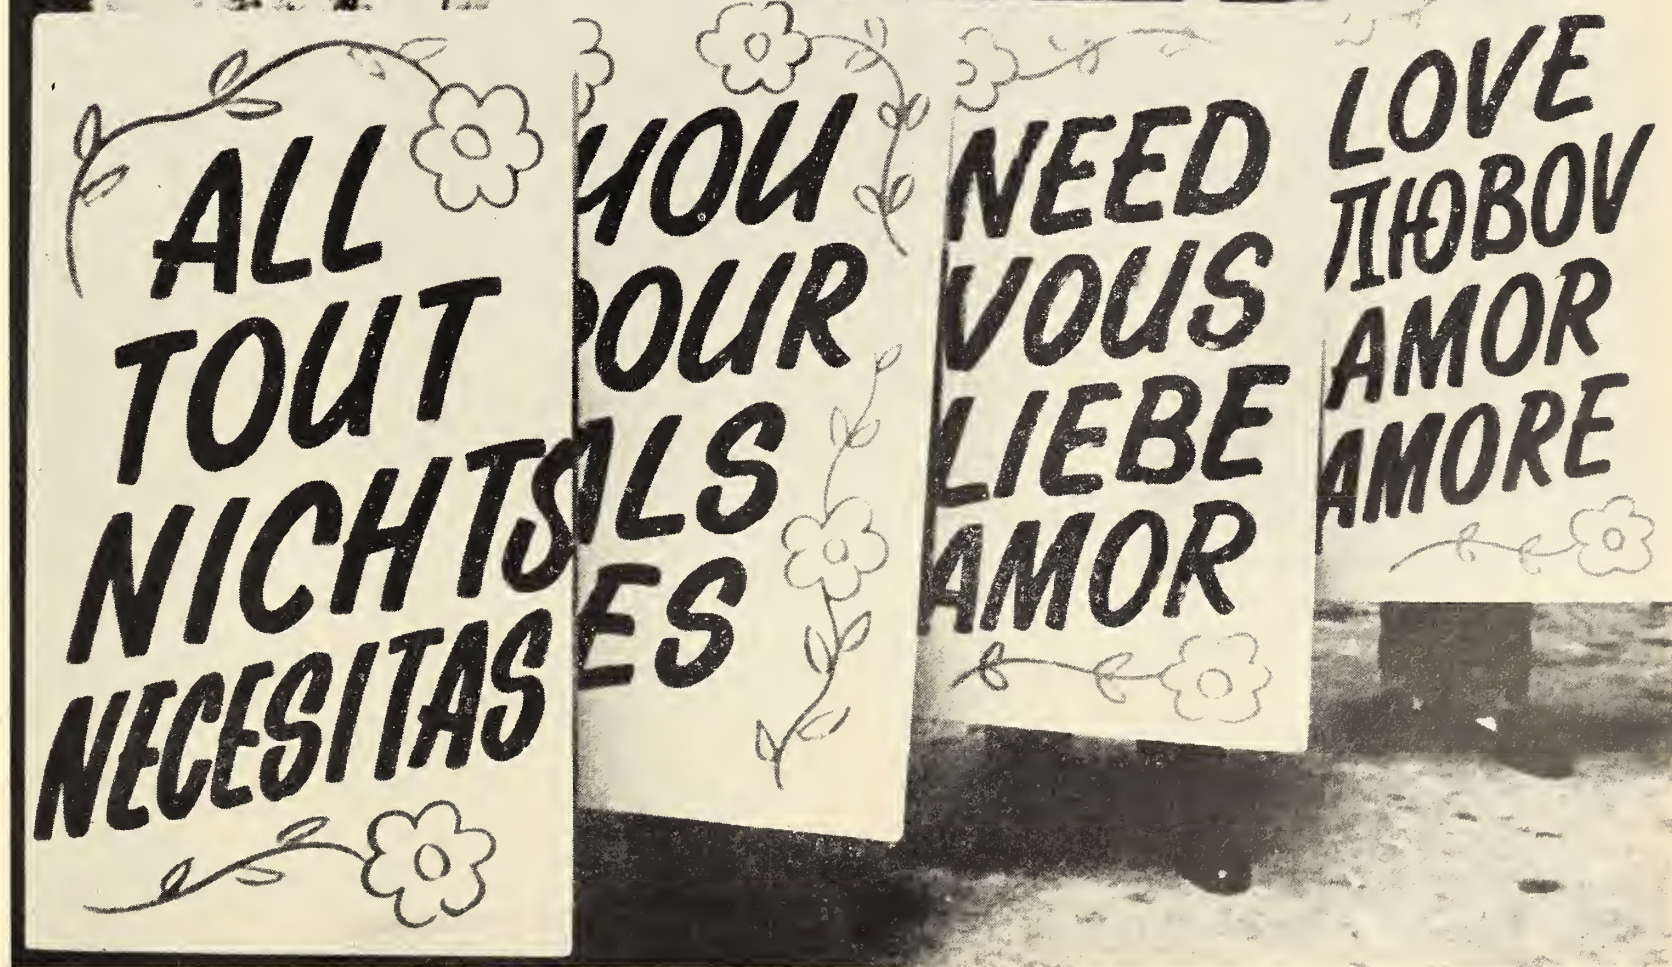 ALL
TOUT
NICHTS
NECESITAS
YOU
POUR
ALS
ES
NEED
VOUS
LIEBE
AMOR
LOVE
ПЮBOV
AMOR
AMORE